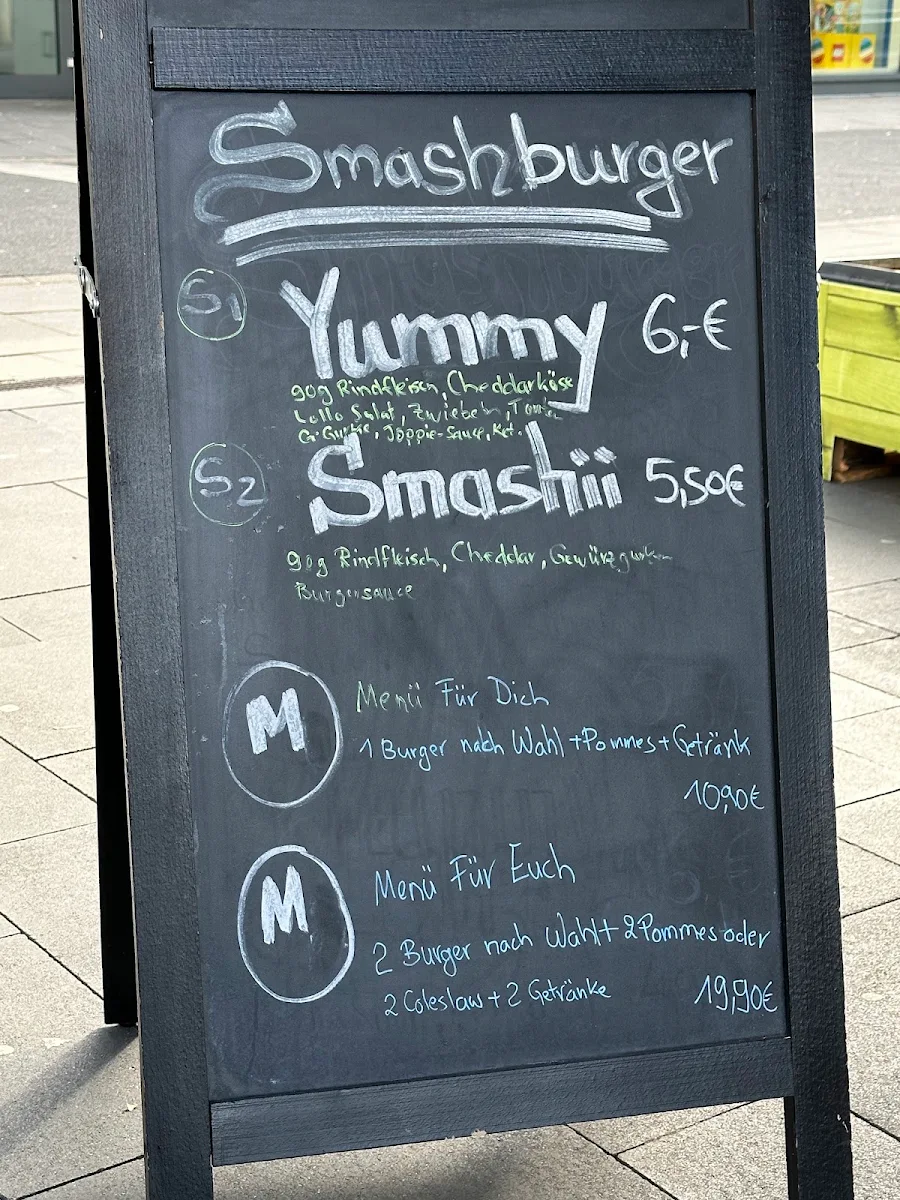 Smashburger
S1 Yummy 6,-€
90g Rindfleisch, Cheddarkäse
Lollo Salat, Zwiebeln,
G. Gurke, Joppie-Sauce, Ket.
S2 Smashii 5,50€
90g Rindfleisch, Cheddar, Gewürzgurken
Burgersauce
M Menü Für Dich
1 Burger nach Wahl +Pommes+Getränk
10,90€
M Menü Für Euch
2 Burger nach Wahl+ 2Pommes oder
2 Coleslaw + 2 Getränke 19,90€